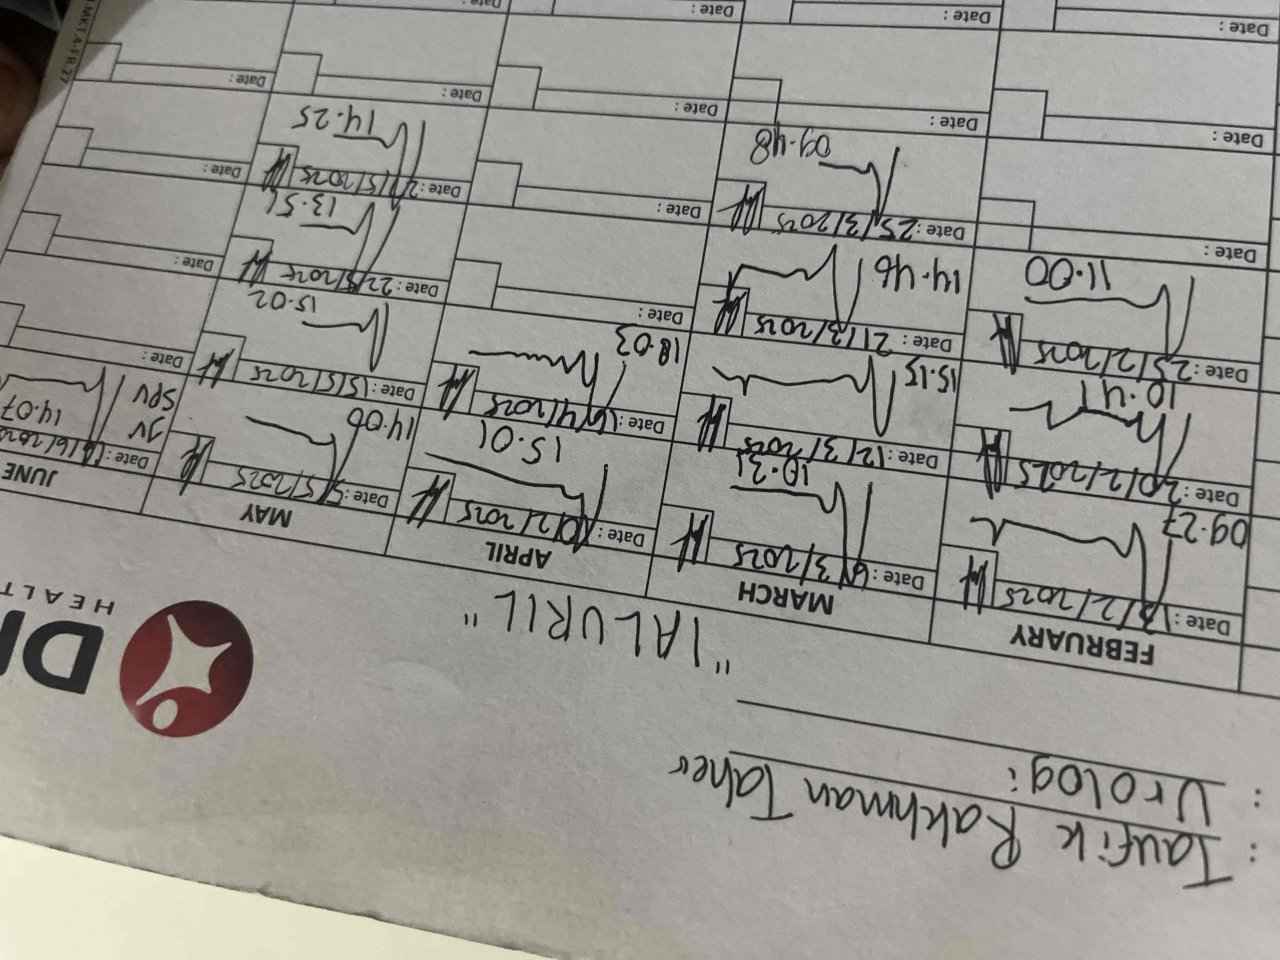 : Taufik Rakhman Taher
: Urologi
"TALURIL"
HEALT
FEBRUARY
MARCH
APRIL
MAY
JUNE
Date: /2/2025
09.27
Date: 20/2/2025
10.41
Date: 25/2/2025
11.00
Date:
Date:
Date:
Date: 6/3/2025
10.31
Date: 12/3/2025
15.15
Date: 21/3/2025
14.46
Date: 25/3/2025
09.48
Date:
Date:
Date: /2025
15.01
Date: /4/2025
18.03
Date:
Date:
Date:
Date:
Date: 5/5/2025
14.06
Date: 15/5/2025
15.02
Date: 22/5/2025
13.56
Date: /5/2025
14.25
Date:
Date:
Date: /6/202
JV
SPV
14.07
Date:
Date:
Date:
Date: